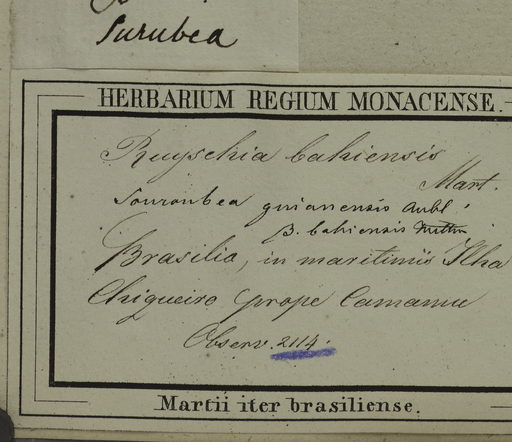 Surubea
HERBARIUM REGIUM MONACENSE.
Ruyschia bahiensis
Mart.
Souroubea guianensis Aubl.
β. bahiensis
Brasilia, in maritimis Ilha
Chiqueiro prope Camamu
Observ. 2114.
Martii iter brasiliense.